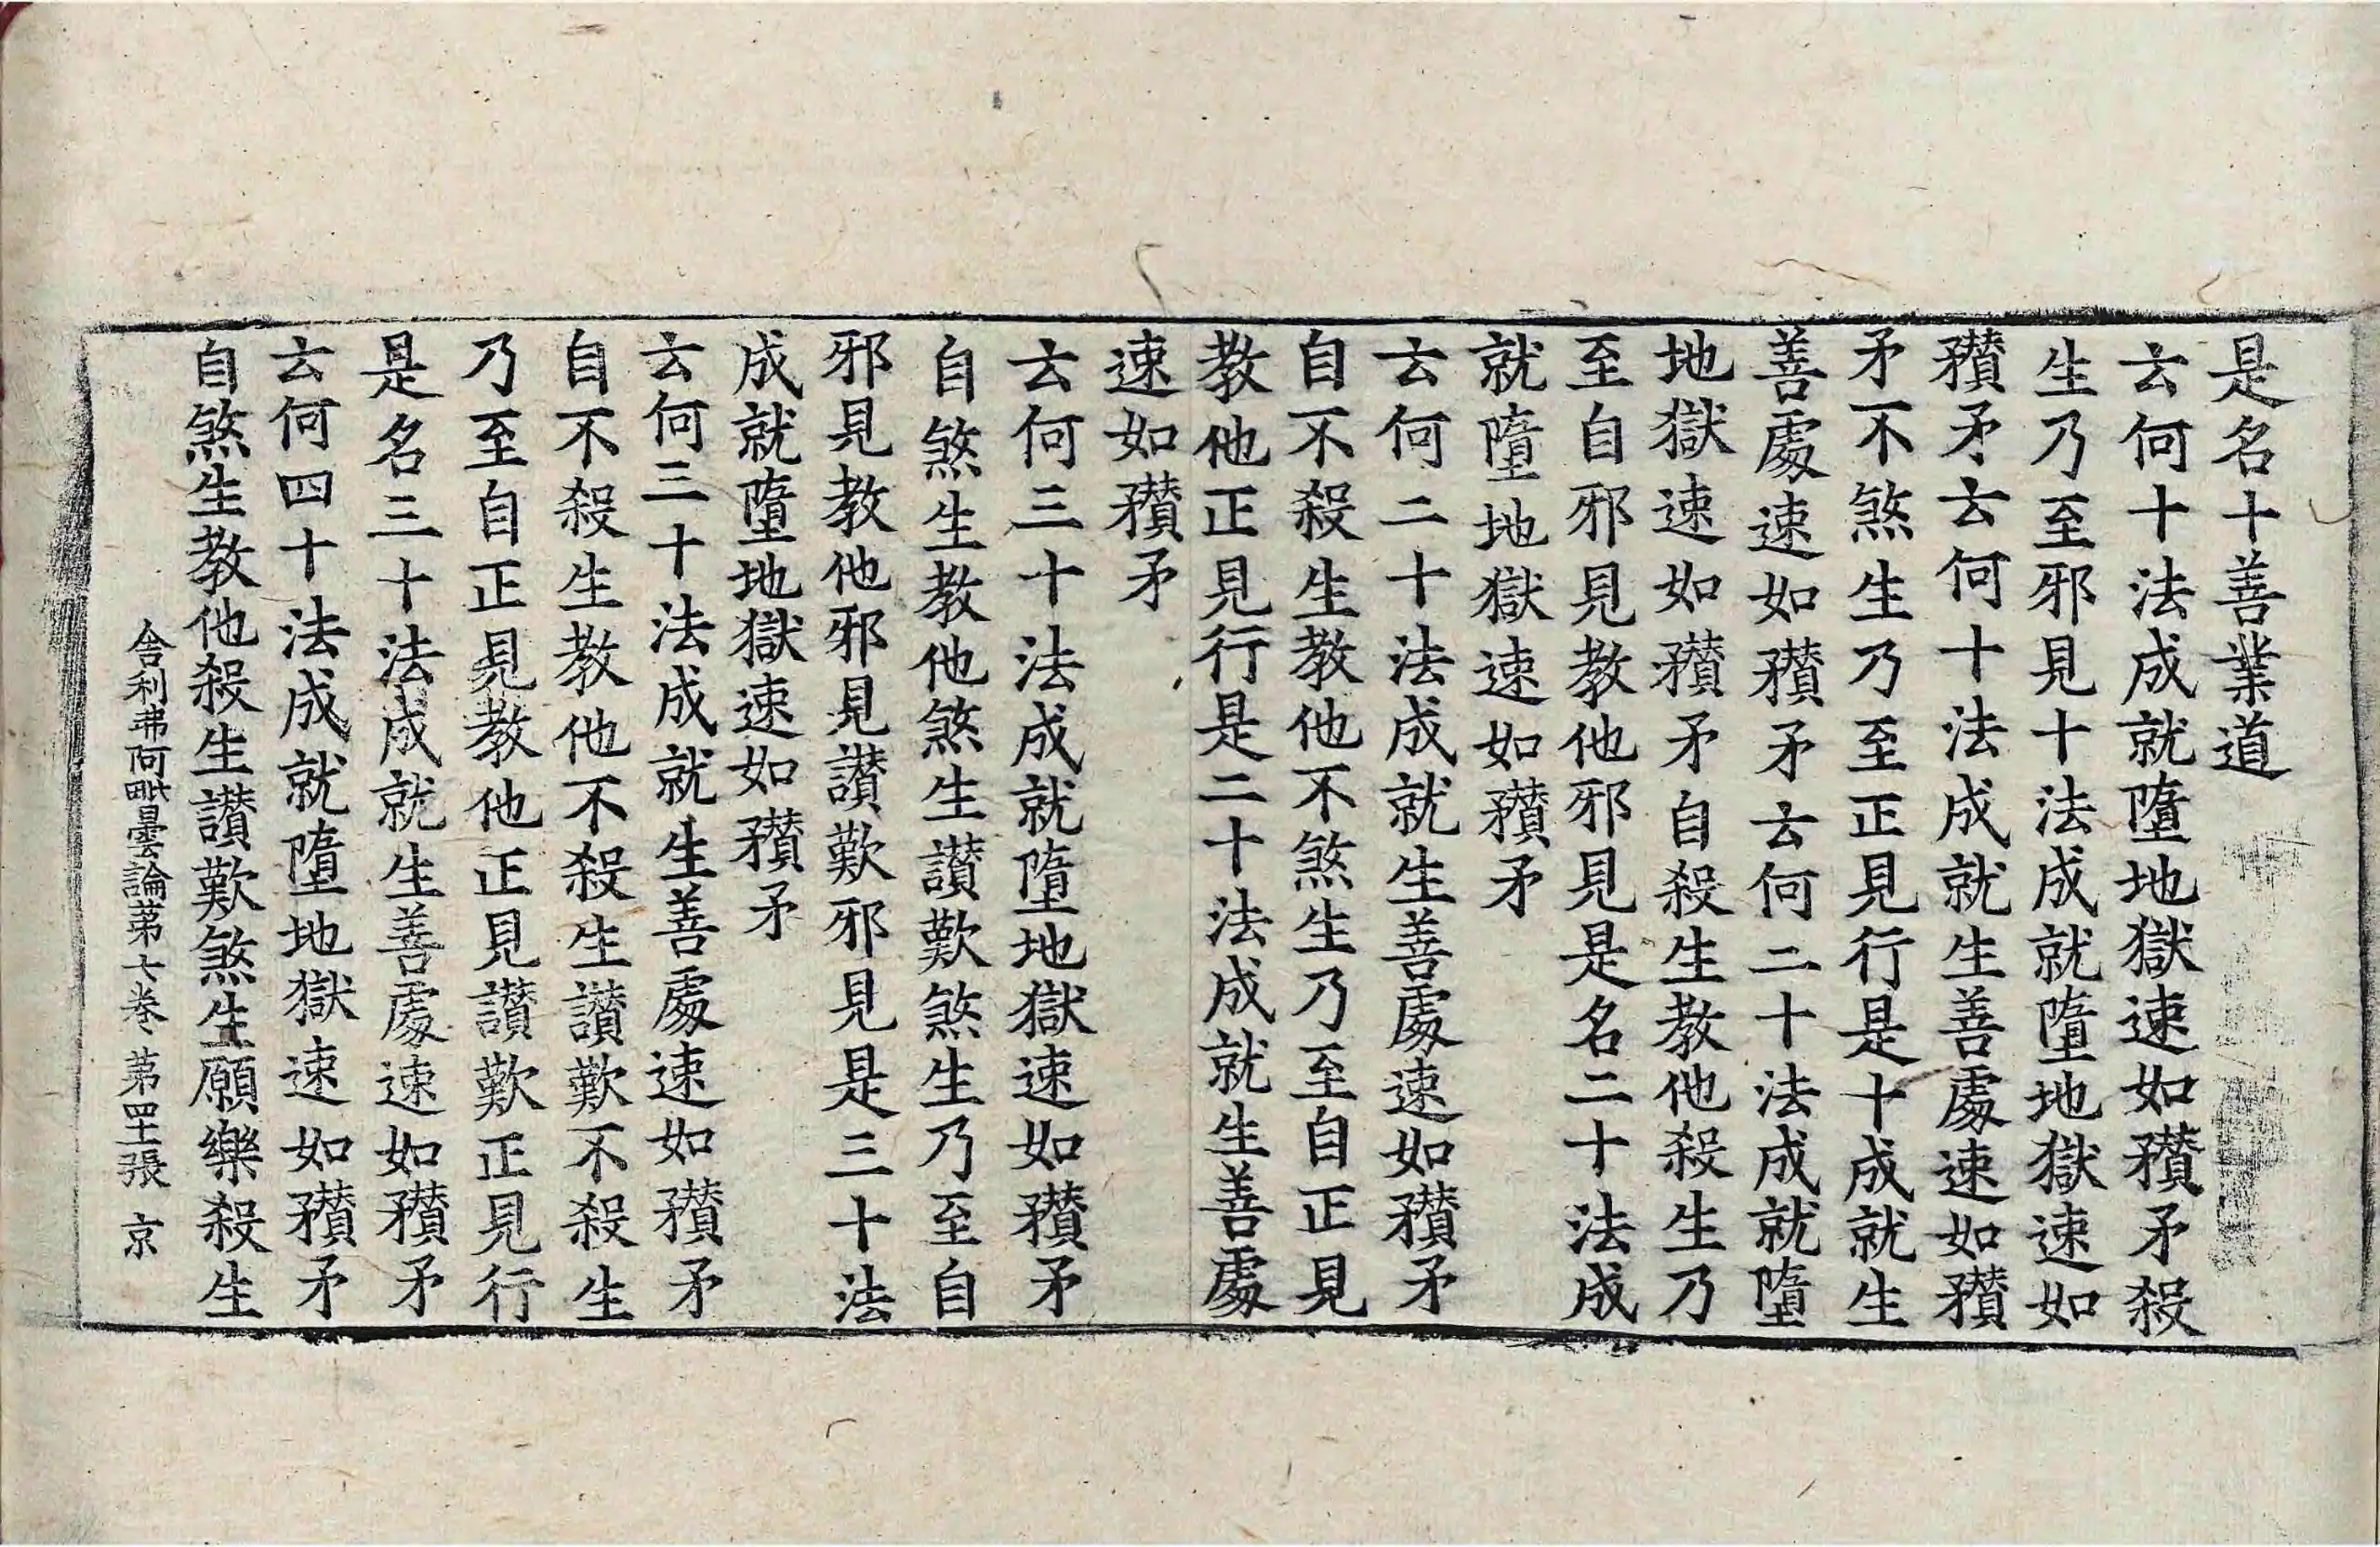 是名十善業道
云何十法成就墮地獄速如矟矛殺
生乃至邪見十法成就墮地獄速如
穳矛云何十法成就生善處速如穳
矛不煞生乃至正見行是十成就生
善處速如穳矛云何二十法成就墮
地獄速如穳矛自殺生教他殺生乃
至自邪見教他邪見是名二十法成
就墮地獄速如穳矛
云何二十法成就生善處速如穳矛
自不殺生教他不煞生乃至自正見
教他正見行是二十法成就生善處
速如穳矛
云何三十法成就墮地獄速如穳矛
自煞生教他煞生讃歎煞生乃至自
邪見教他邪見讃歎邪見是三十法
成就墮地獄速如穳矛
云何三十法成就生善處速如穳矛
自不殺生教他不殺生讃歎不殺生
乃至自正見教他正見讃歎正見行
是名三十法成就生善處速如穳矛
云何四十法成就墮地獄速如穳矛
自煞生教他殺生讃歎煞生願樂殺生
舍利弗阿毗曇論苐七卷 第罜張 京